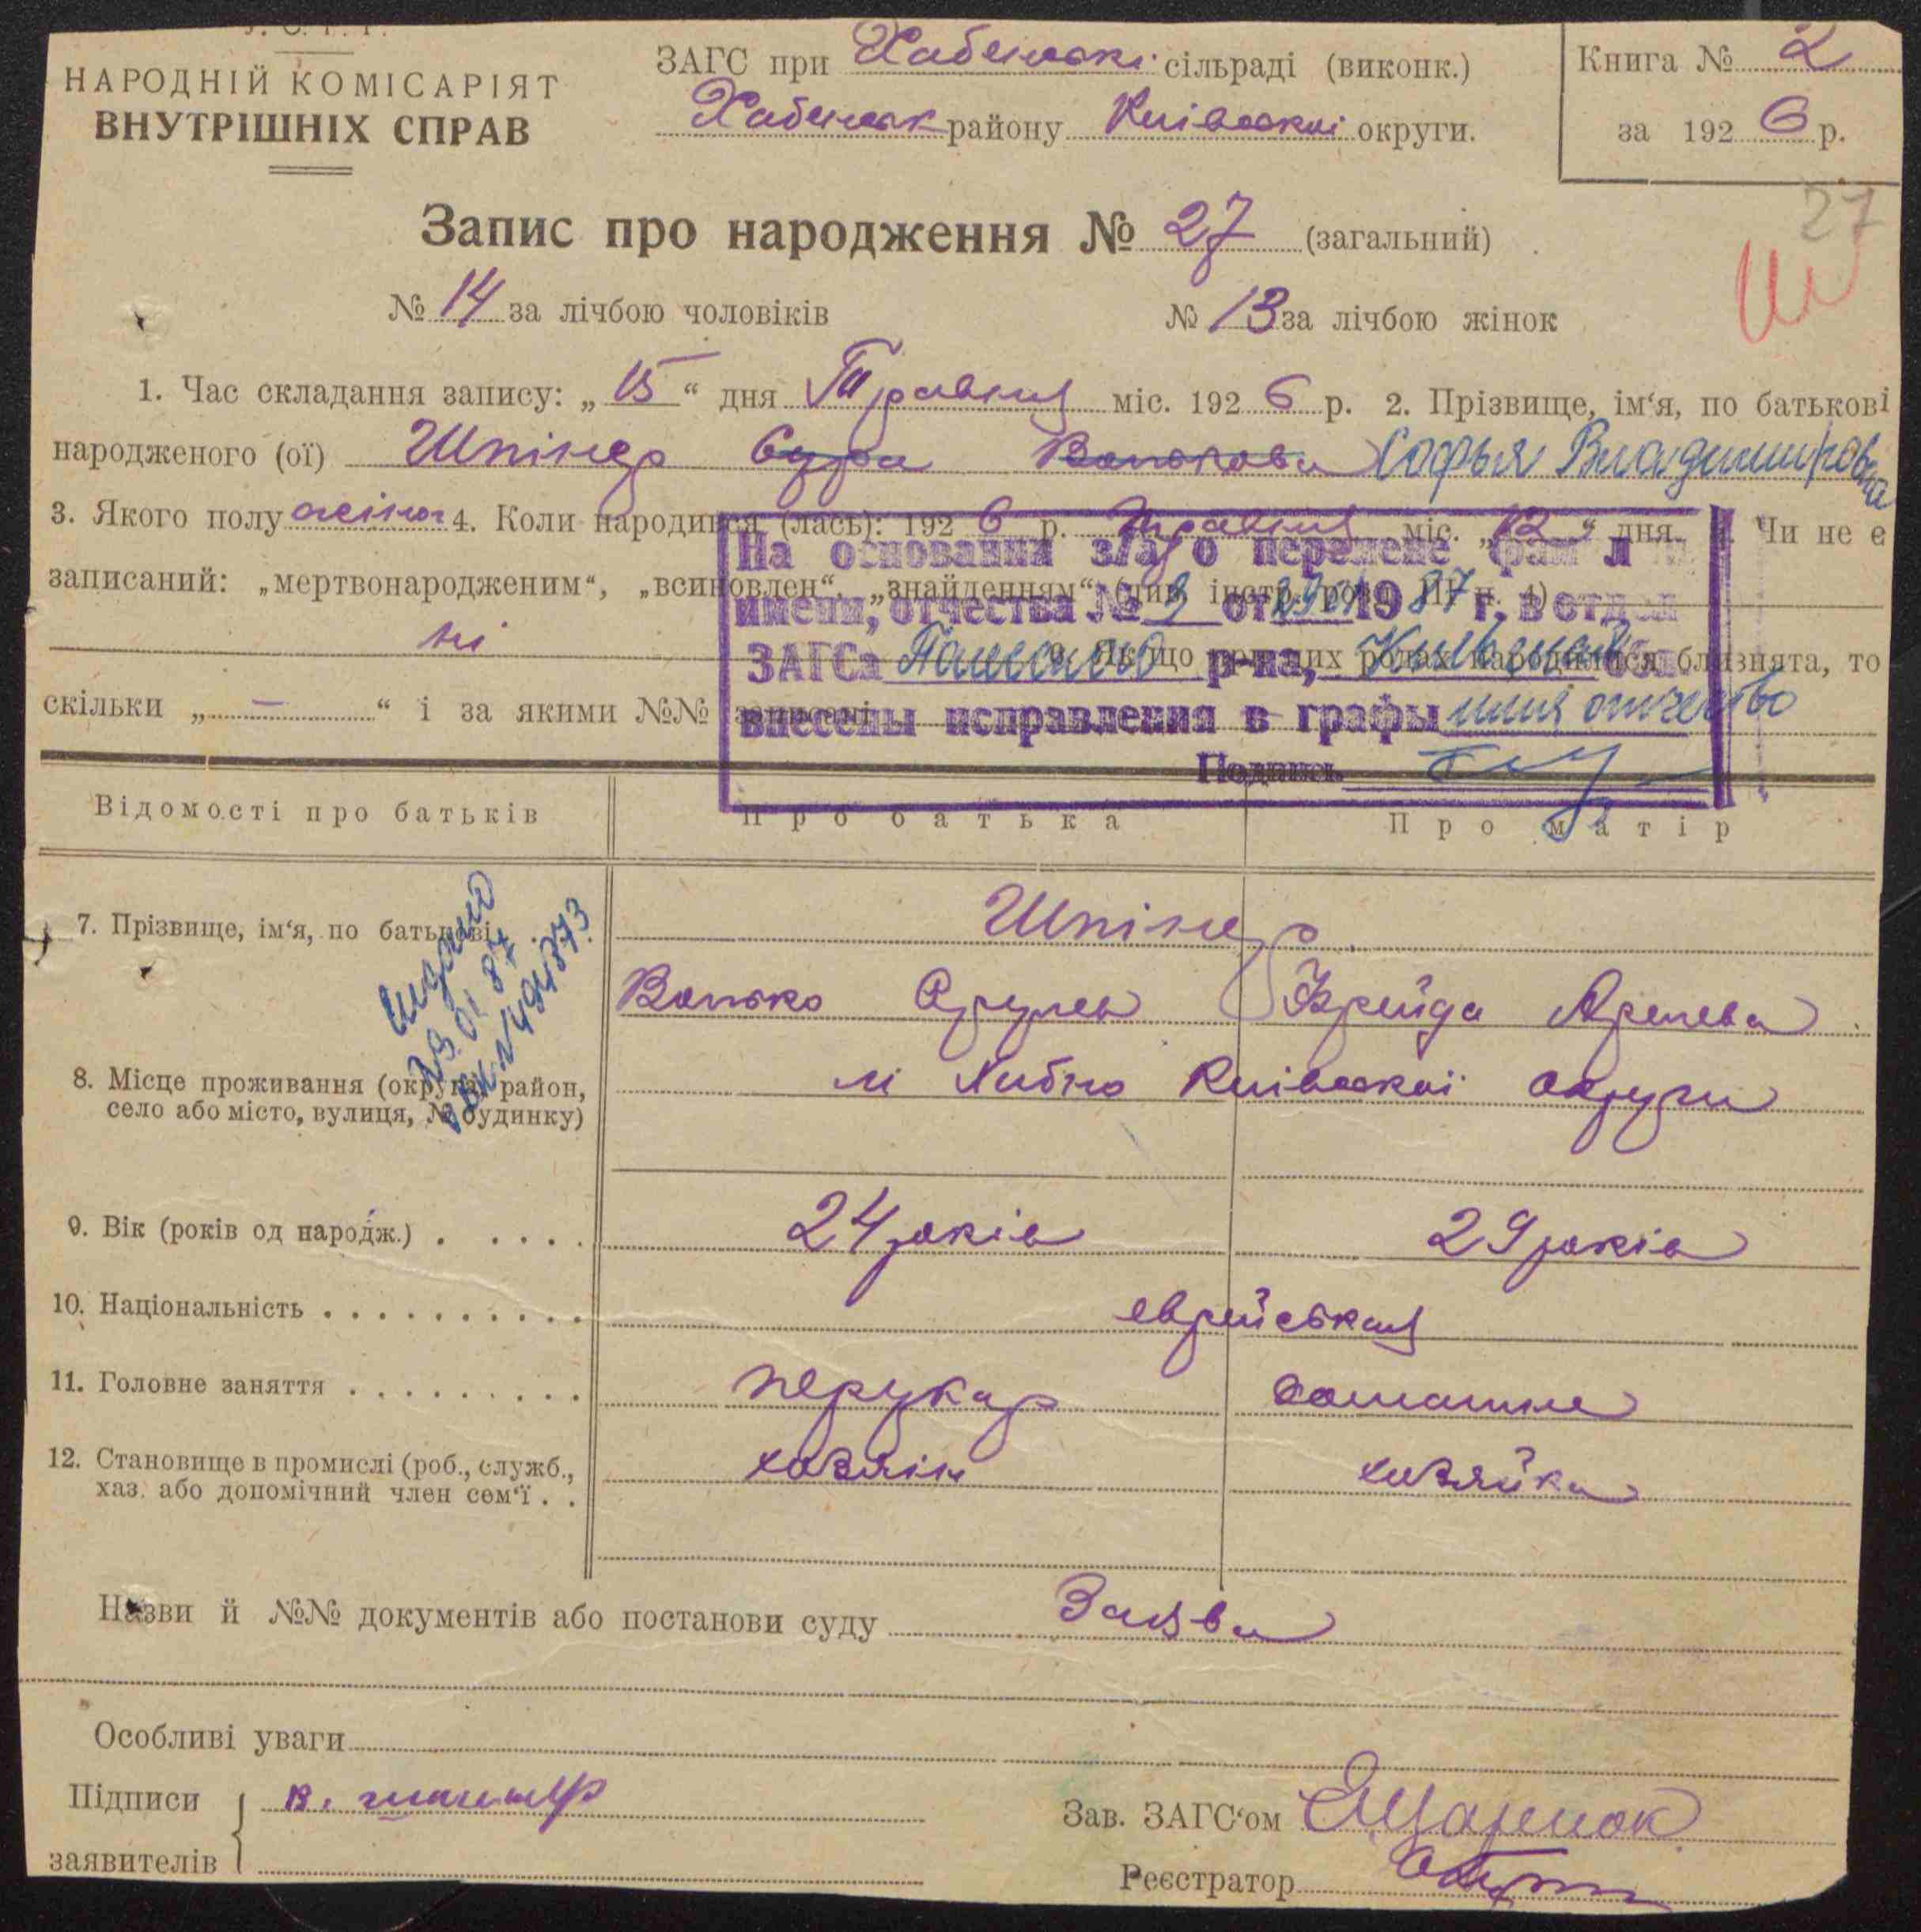 НАРОДНІЙ КОМІСАРІЯТ
ВНУТРІШНІХ СПРАВ
ЗАГС при Хабенські сільраді (виконк.)
Хабенськ району Київської округи.
Книга № 2
за 192 6 р.
Запис про народження № 27 (загальний)
27
№ 14 за лічбою чоловіків № 13 за лічбою жінок
1. Час складання запису: „ 15 “ дня Травня міс. 192 6 р. 2. Прізвище, ім‘я, по батькові
народженого (ої) Шпінер Сура Вольковa Софья Владимировна
3. Якого полу жіноч 4. Коли народився (лась): 192 6 р. Травня міс. „ 12 “ дня. Чи не є
записаний: „мертвонародженим“, „всиновлен“, „знайденням“ (див. інстр. розд. III п. 4)
ні
6. Якщо при цих родах народилися близнята, то
скільки „ — “ і за якими №№ записані
На основании з/а о перемене фамил
имени, отчества № 3 от 19 87 г. в отдел
ЗАГСа Полесского р-на, Киевской обл.
внесены исправления в графы имя отчество
Подпись
Відомості про батьків Про батька Про матір
7. Прізвище, ім‘я, по батькові Шпінер
Волько Фрейда
8. Місце проживання (округа, район, Київської округи
село або місто, вулиця, № будинку)
Выдано
23 01 87
9. Вік (років од народж.) 24 років 29 років
10. Національність єврейська
11. Головне заняття перукар домашнє
12. Становище в промислі (роб., служб., хазяїн хазяйка
хаз. або допомічний член сем‘ї
Назви й №№ документів або постанови суду Заява
Особливі уваги
Підписи
заявителів
Зав. ЗАГС‘ом
Реєстратор